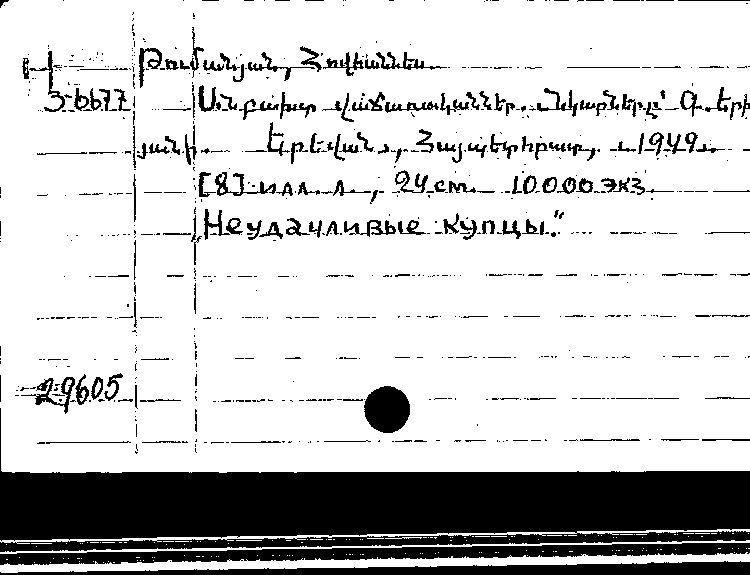 Թումանյան, Հովհաննես.
3-6677 Անբախտ վաճառականներ. Նկարները՝ Գ. Երի
յանի. Երևան, Հայպետհրատ, 1949.
[8] илл. л., 24 cm. 10000 экз.
„Неудачливые купцы."
29605